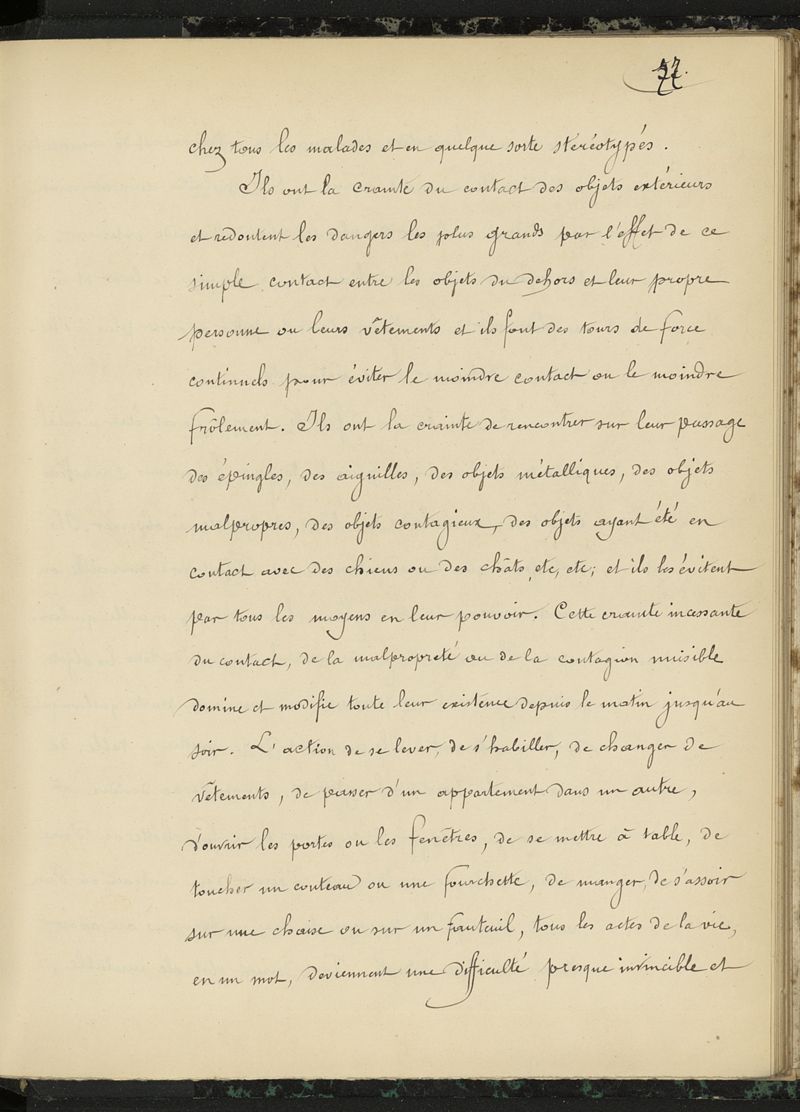 77.
chez tous les malades et en quelque sorte stéréotypés.
Ils ont la crainte du contact des objets extérieurs
et redoutent les dangers les plus grands par l'effet de ce
simple contact entre les objets du dehors et leur propre
personne ou leurs vêtements et ils font des tours de force
continuels pour éviter le moindre contact ou le moindre
frôlement. Ils ont la crainte de rencontrer sur leur passage
des épingles, des aiguilles, des objets métalliques, des objets
malpropres, des objets contagieux, des objets ayant été en
contact avec des chiens ou des châts, etc, etc; et ils les évitent
par tous les moyens en leur pouvoir. Cette crainte incessante
du contact, de la malpropreté ou de la contagion nuisible
domine et modifie toute leur existence depuis le matin jusqu'au
soir. L'action de se lever, de s'habiller, de changer de
vêtements, de passer d'un appartement dans un autre,
d'ouvrir les portes ou les fenêtres, de se mettre à table, de
toucher un couteau ou une fourchette, de manger, de s'assoir
sur une chaise ou sur un fauteuil, tous les actes de la vie,
en un mot, deviennent une difficulté presque invincible et